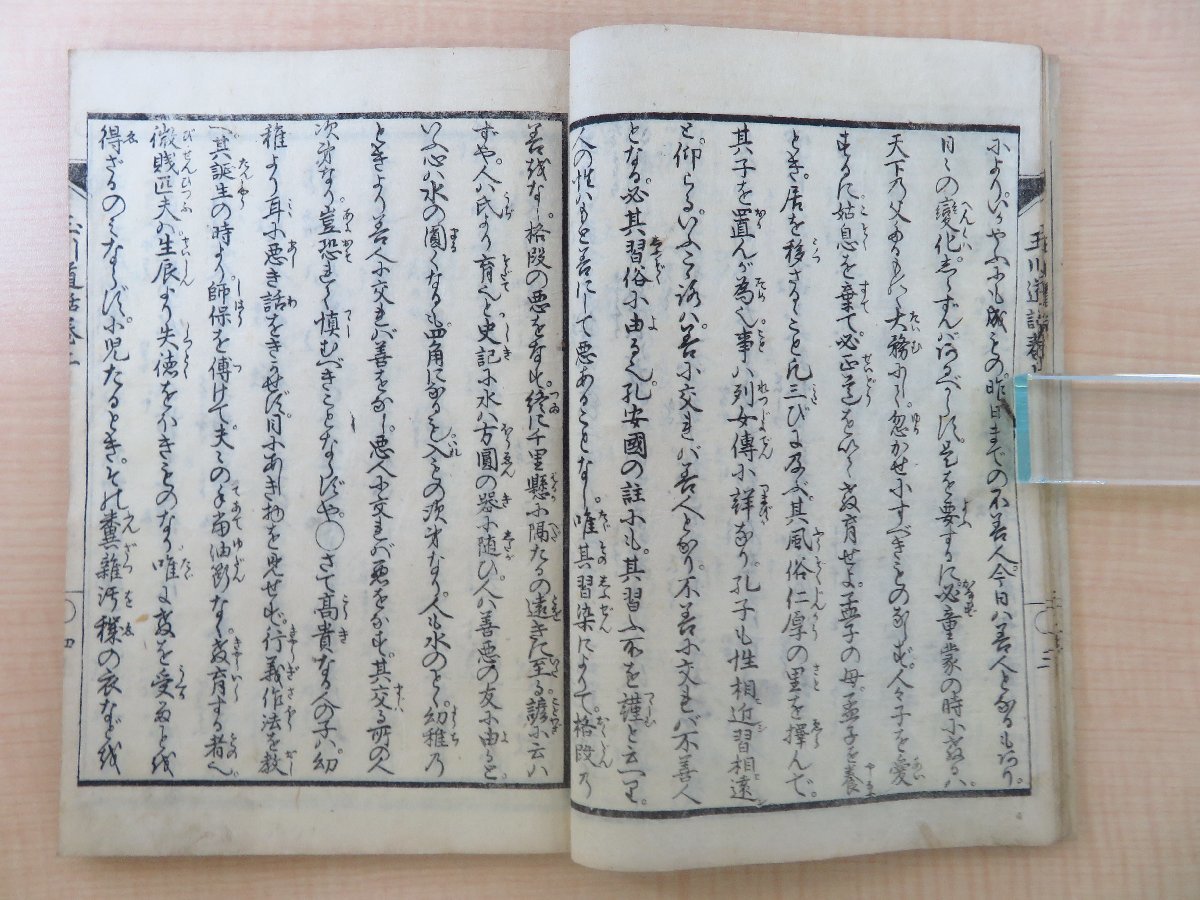 小より。いかやふにも成もの。昨日までの不善人。今日ハ善人となるもあり。
日々の變化しらずんバあるべからず。是を要するに必童蒙の時に教るハ。
天下の父母たるもの大務にして忽かせにすべきものならず。人々子を愛
するに姑息を棄て必正道を以て教育せよ。孟子の母。孟子を養
とき。居を移さるゝこと凡三びに及べ。其風俗仁厚の里を擇んで。
其子を置んが為也。事ハ列女傳に詳なり。孔子も性相近習相遠
と。仰らるいふこゝろハ。善に交れバ善人となり。不善に交れバ不善人
となる。必其習俗に由る也。孔安國の註にも。其習ふ所を謹と云り。
人の性ハもと善にして悪あることなし。唯其習染によりて。格段乃
善をなし。格段の悪をなす。終に千里懸に隔たるの遠きに至る。諺に云ハ
ずや。人ハ氏より育へと史記に水ハ方圓の器に随ひ。人ハ善悪の友に由ると。
いふ心ハ水の圓くなるも四角になるも入ものゝ次才なり。人も水のごとく。幼稚乃
ときより善人に交れバ善をなし。悪人に交れバ悪をなす。其交る所の人
次才なり。豈恐れて慎むべきことならずや○さて高貴なる人の子ハ。幼
稚より耳に悪き話をきかせず。目にあしき物を見せず。行義作法を教
へ。其誕生の時より師保を傅けて。夫々の手當油断なく。教育する者也。
微賤匹夫の生辰より失徳を
得ざるのミならず。小児たるとき。その糞雜汚穢の衣などを
玉川道話巻上
三
四